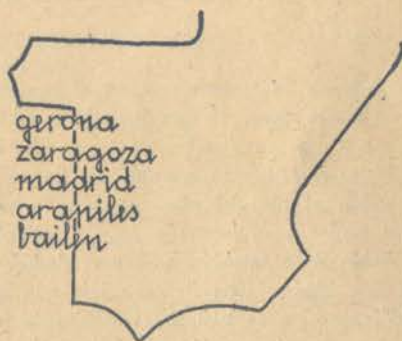 gerona
zaragoza
madrid
arapiles
bailén